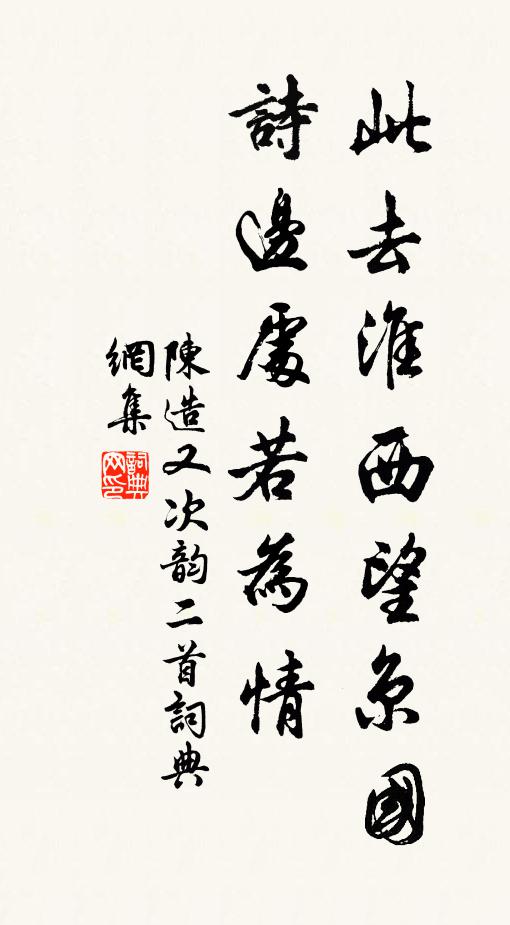 此去淮西望京國
詩邊處若為情
陳造又次韵二首詞典
網集
詞典
网印